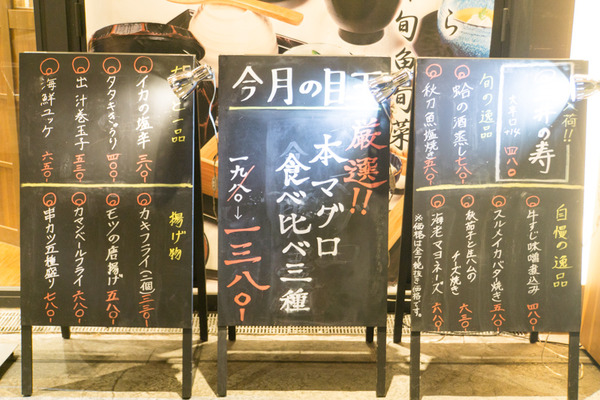 旬魚旬菜
ら
一品
イカの塩辛 三八〇ー
タタキきゅうり 四〇〇ー
出汁巻玉子 五三〇ー
海鮮ユッケ 六五〇ー
揚げ物
カキフライ(二個) 三三〇ー
モツの唐揚げ 五八〇ー
カマンベールフライ 六八〇ー
串カツ五種盛り 七八〇ー
今月の目玉
厳選!!
本マグロ
食べ比べ三種
一九八〇→一三八〇ー
入荷!!
の寿
旬の逸品
蛤の酒蒸し 七八〇ー
秋刀魚塩焼き 五八〇ー
自慢の逸品
牛すじ味噌煮込み 四八〇ー
スルメイカバタ焼き 五八〇ー
秋茄子と生ハムの
チーズ焼き 六三〇ー
海老マヨネーズ 六八〇ー
※価格は全て税抜き価格です。